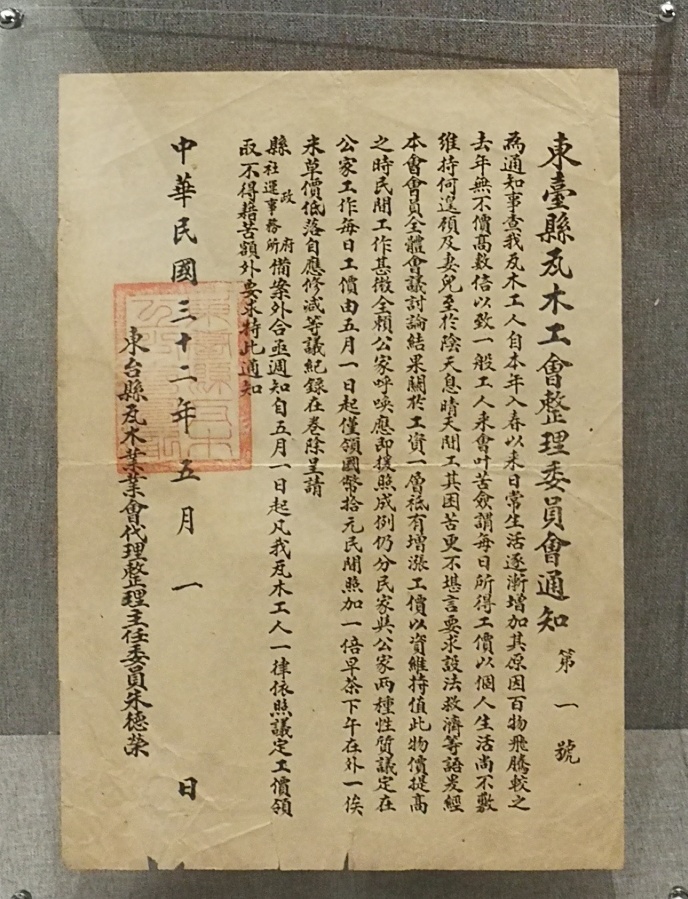 東臺縣瓦木工會整理委員會通知 第一號
為通知事查我瓦木工人自本年入春以來日常生活逐漸增加其原因百物飛騰較之
去年無不價高数倍以致一般工人來會叶苦僉謂每日所得工價以個人生活尚不敷
維持何遑顧及妻兒至於陰天息晴天開工其困苦更不堪言要求設法救濟等語爰經
本會會員全體會議討論結果關於工資一層祗有增漲工價以資維持值此物價提高
之時民間工作甚微全賴公家呼喚應即援照成例仍分民家與公家兩種性質議定在
公家工作每日工價由五月一日起僅領國幣拾元民間照加一倍早茶下午在外一俟
米草價低落自應修减等議紀錄在卷除呈請
縣政府社運事務所備案外合亟週知自五月一日起凡我瓦木工人一律依照議定工價領
取不得藉苦額外要求特此通知
中華民國三十二年五月一日
東台縣瓦木業業會代理整理主任委員朱德榮